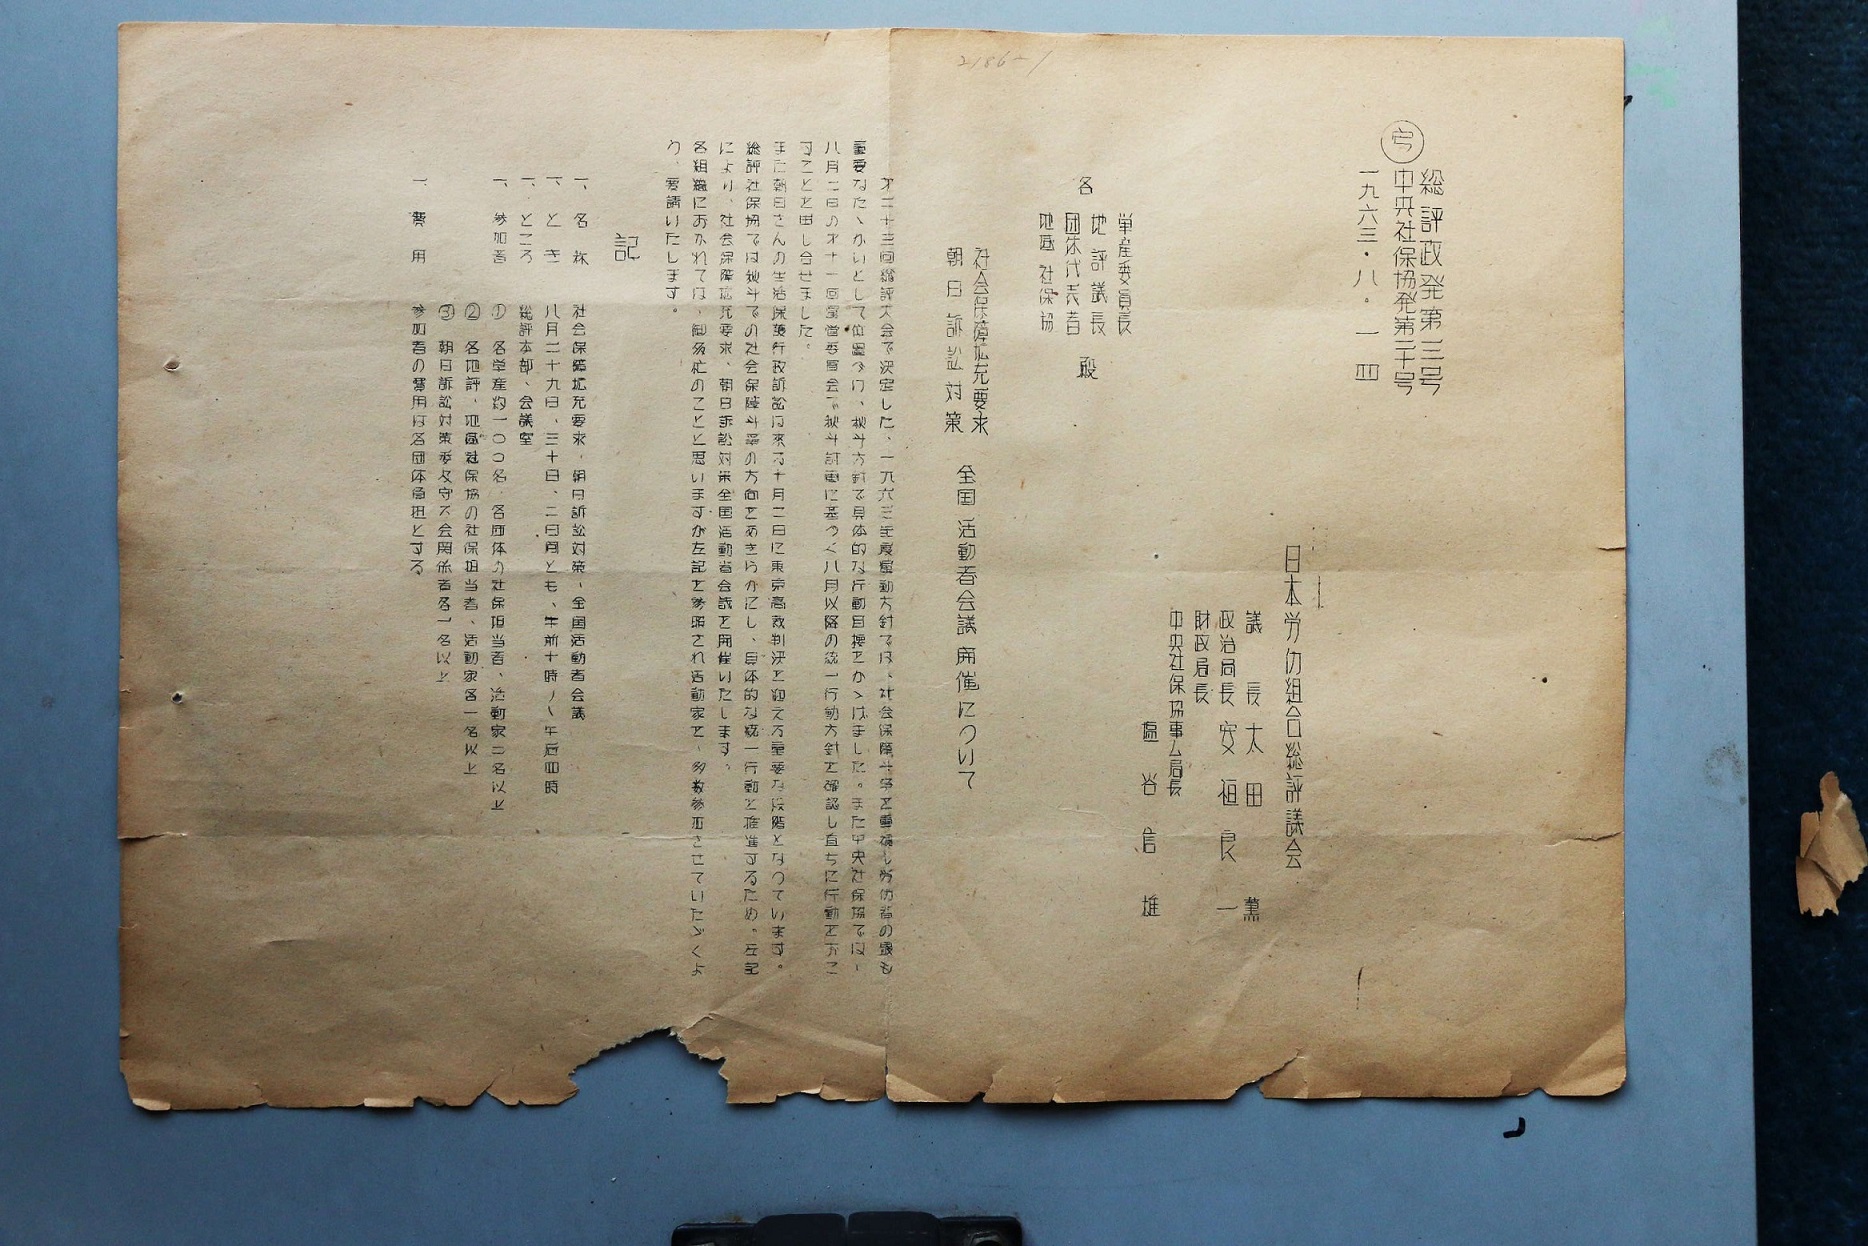 2186-1
㊢
総評政発第三号
中央社保協発第三十号
一九六三・八・一四
日本労仂組合総評議会
議長 太田薫
政治局長 安恒良一
財政局長
中央社保協事ム局長
塩谷信雄
各
単産委員長
地評議長
団体代表者
地區社保協
殿
社会保障拡充要求
朝日訴訟対策
全国活動者会議開催について
才二十三回総評大会で決定した、一九六三年度運動方針では、社会保障斗争を重視し労仂者の最も
重要なたゝかいとして位置づけ、秋斗方針で具体的な行動目標をかゝげました。また中央社保協では、
八月二日の才十一回運営委員会で秋斗計画に基づく八月以降の統一行動方針を確認し直ちに行動をおこ
すことを申し合せました。
また朝日さんの生活保護行政訴訟は来る十月二日に東京高裁判決を迎える重要な段階となっています。
総評社保協では秋斗での社会保障斗争の方向をあきらかにし、具体的な統一行動を推進するため、左記
により、社会保障拡充要求、朝日訴訟対策全国活動者会議を開催いたします。
各組織におかれては、御多忙のことと思いますが左記を参照され活動家を、多数参加させていたゞくよ
う、要請いたします。
記
一、名称 社会保障拡充要求・朝日訴訟対策・全国活動者会議
一、とき 八月二十九日、三十日、二日間とも、午前十時〜午后四時
一、ところ 総評本部、会議室
一、参加者 ① 各単産約一〇〇名、各団体の社保担当者、活動家二名以上
② 各地評、地區社保協の社保担当者、活動家各一名以上
③ 朝日訴訟対策委及守る会関係者各一名以上
一、費用 参加者の費用は各団体負担とする